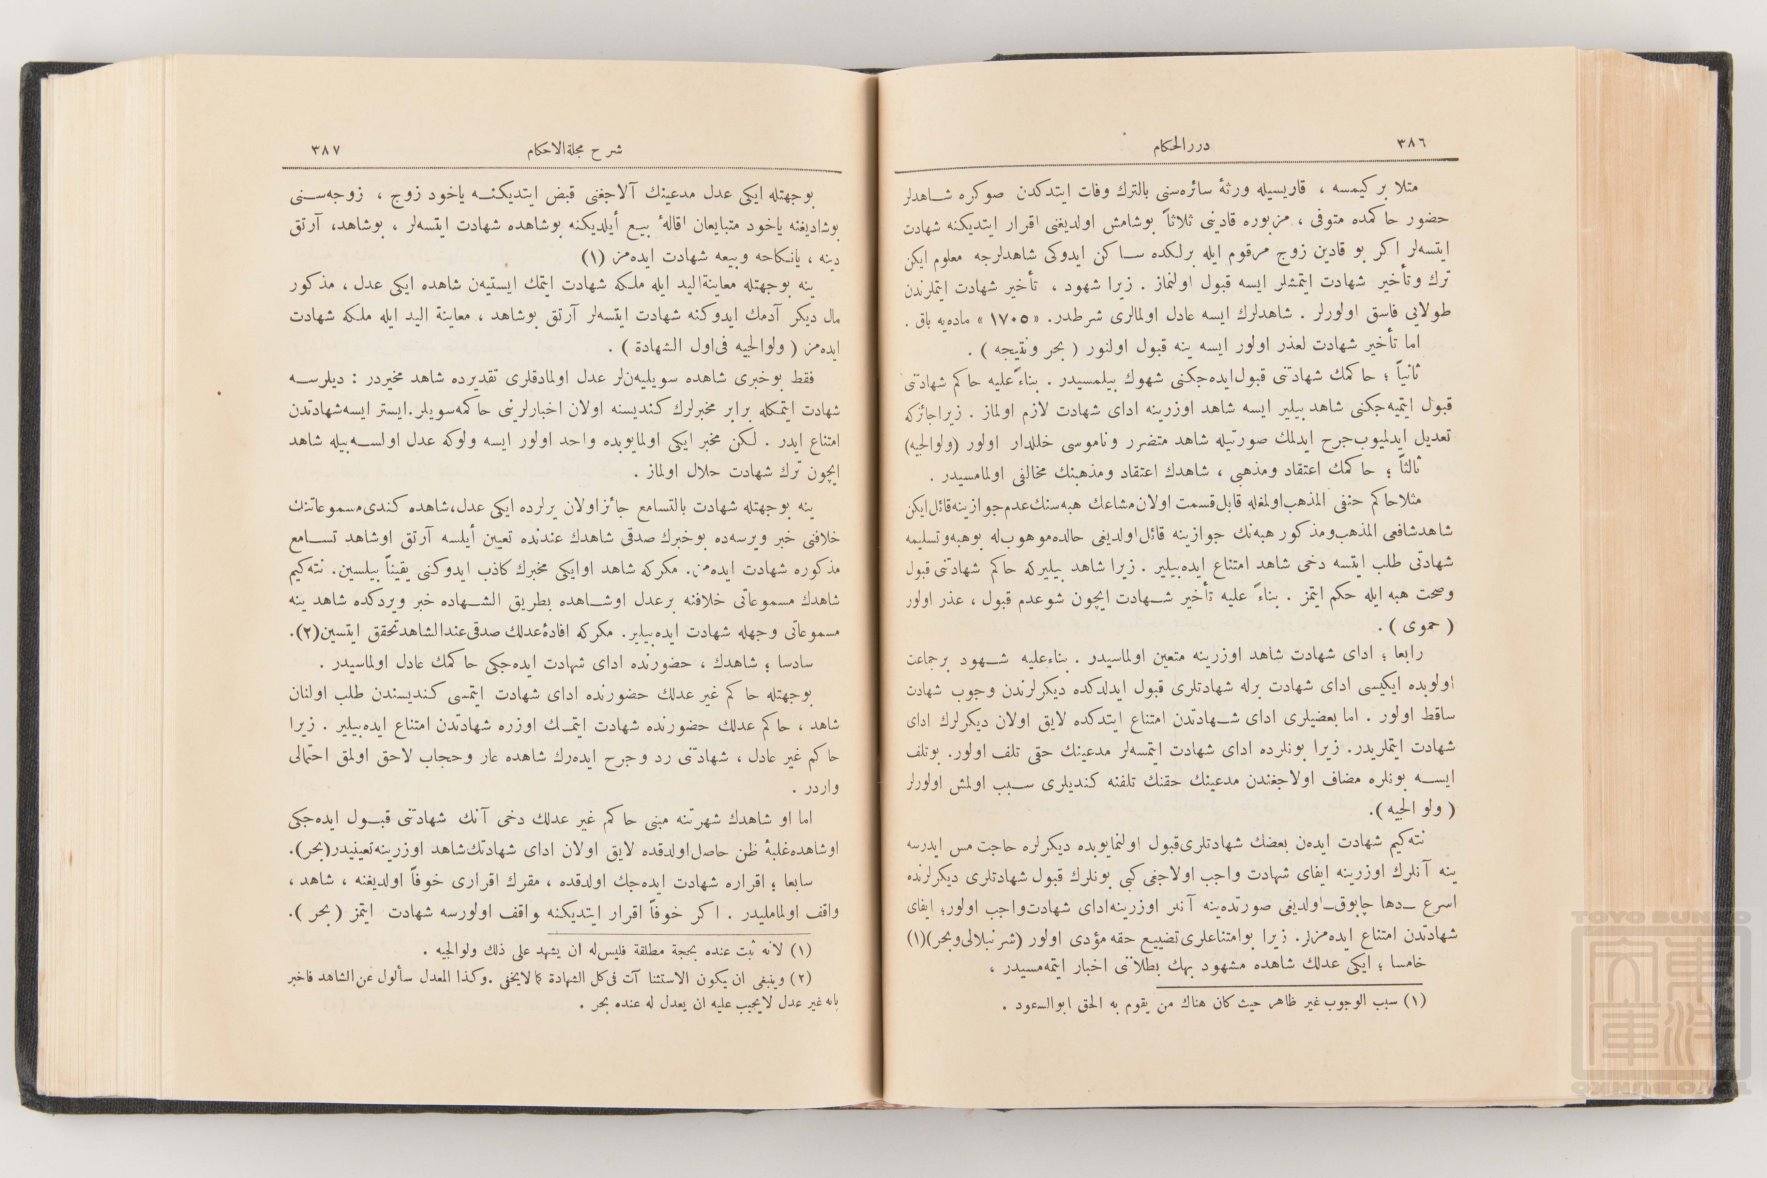 ٣٨٦
دررالحكام
مثلا بر كيمسه ، قاريسيله ورثهٔ سائره‌سنى بالترك وفات ايتدكدن صوكره شاهدلر
حضور حاكمده متوفى ، مزبوره قادينى ثلاثاً بوشامش اولديغنى اقرار ايتديكنه شهادت
ايتسه‌لر اكر بو قادين زوج مرقوم ايله برلكده ساكن ايدوكى شاهدلرجه معلوم ايكن
ترك وتأخير شهادت ايتمشلر ايسه قبول اولنماز . زيرا شهود ، تأخير شهادت ايتملرندن
طولايى فاسق اولورلر . شاهدلرك ايسه عادل اولمالرى شرطدر. « ١٧٠٥ » ماده‌يه باق .
اما تأخير شهادت لعذر اولور ايسه ينه قبول اولنور ( بحر ونتيجه ) .
ثانياً ؛ حاكمك شهادتنى قبول‌ايده‌جكنى شهوك بيلمسيدر . بناءً عليه حاكم شهادتنى
قبول ايتميه‌جكنى شاهد بيلير ايسه شاهد اوزرينه اداى شهادت لازم اولماز . زيراجائزكه
تعديل ايدلميوب‌جرح ايدلمك صورتيله شاهد متضرر وناموسى خللدار اولور (ولوالجيه)
ثالثاً ؛ حاكمك اعتقاد ومذهبى ، شاهدك اعتقاد ومذهبنك مخالفى اولمامسيدر .
مثلاحاكم حنفى المذهب‌اولمغله قابل‌قسمت اولان‌مشاعك هبه‌سنك‌عدم‌جوازينه‌قائل‌ايكن
شاهدشافعى المذهب‌ومذكور هبه‌نك جوازينه قائل‌اولديغى حالده‌موهوب‌له بوهبه‌وتسليمه
شهادتى طلب ايتسه دخى شاهد امتناع ايده‌بيلير . زيرا شاهد بيليركه حاكم شهادتنى قبول
وصحت هبه ايله حكم ايتمز . بناءً عليه تأخير شهادت ايچون شوعدم قبول ، عذر اولور
( حموى ) .
رابعا ؛ اداى شهادت شاهد اوزرينه متعين اولماسيدر . بناءعليه شهود برجماعت
اولوبده ايكيسى اداى شهادت برله شهادتلرى قبول ايدلدكده ديكرلرندن وجوب شهادت
ساقط اولور . امابعضيلرى اداى شهادتدن امتناع ايتدكده لايق اولان ديكرلرك اداى
شهادت ايتملريدر. زيرا بونلرده اداى شهادت ايتمسه‌لر مدعينك حقى تلف اولور. بوتلف
ايسه بونلره مضاف اولاجغندن مدعينك حقنك تلفنه كنديلرى سبب اولمش اولورلر
( ولو الجيه ).
نته‌كيم شهادت ايده‌ن بعضك شهادتلرى‌قبول اولنمايوبده ديكرلره حاجت مس ايدرسه
ينه آنلرك اوزرينه ايفاى شهادت واجب اولاجغى‌كبى بونلرك قبول شهادتلرى ديكرلرنده
اسرع ـ دها چابوق ـ اولديغى صورتده‌ينه آنلر اوزرينه‌اداى شهادت‌واجب اولور؛ ايفاى
شهادتدن امتناع ايده‌مزلر. زيرا بوامتناعلرى‌تضييع حقه مؤدى اولور (شرنبلالى‌وبحر)(١)
خامسا ؛ ايكى عدلك شاهده مشهود بهك بطلاننى اخبار ايتمه‌مسيدر ،
(١) سبب الوجوب غير ظاهر حيث كان هناك من يقوم به الحق ابوالسعود .
٣٨٧
شرح مجلةالاحكام
بوجهتله ايكى عدل مدعينك آلاجغنى قبض ايتديكنه ياخود زوج ، زوجه‌سنى
بوشاديغنه ياخود متبايعان اقالهٔ بيع أيلديكنه بوشاهده شهادت ايتسه‌لر ، بوشاهد، آرتق
دينه ، يانكاحه وبيعه شهادت ايده‌مز (١)
ينه بوجهتله معاينةاليد ايله ملكه شهادت ايتمك ايستيه‌ن شاهده ايكى عدل ، مذكور
مال ديكر آدمك ايدوكنه شهادت ايتسه‌لر آرتق بوشاهد ، معاينة اليد ايله ملكه شهادت
ايده‌مز ( ولوالجيه فى‌اول الشهادة ) .
فقط بوخبرى شاهده سويليه‌نلر عدل اولمادقلرى تقديرده شاهد مخيردر : ديلرسه
شهادت ايتمكله برابر مخبرلرك كنديسنه اولان اخبارلرنى حاكمه‌سويلر.ايستر ايسه‌شهادتدن
امتناع ايدر . لكن مخبر ايكى اولمايوبده واحد اولور ايسه ولوكه عدل اولسه‌بيله شاهد
ايچون ترك شهادت حلال اولماز .
ينه بوجهتله شهادت بالتسامع جائزاولان يرلرده ايكى عدل،شاهده كندى‌مسموعاتنك
خلافنى خبر ويرسه‌ده بوخبرك صدقى شاهدك عندنده تعيين أيلسه آرتق اوشاهد تسامع
مذكوره شهادت ايده‌مز. مكركه شاهد اوايكى مخبرك كاذب ايدوكنى يقيناً بيلسين. نته‌كيم
شاهدك مسموعاتى خلافنه برعدل اوشاهده بطريق الشهاده خبر ويردكده شاهد ينه
مسموعاتى وجهله شهادت ايده‌بيلير. مكركه افادهٔ‌عدلك صدقى‌عندالشاهدتحقق ايتسين(٢).
سادسا ؛ شاهدك ، حضورنده اداى شهادت ايده‌جكى حاكمك عادل اولماسيدر .
بوجهتله حاكم غير عدلك حضورنده اداى شهادت ايتمسى كنديسندن طلب اولنان
شاهد ، حاكم عدلك حضورنده شهادت ايتمك اوزره شهادتدن امتناع ايده‌بيلير . زيرا
حاكم غير عادل ، شهادتنى رد وجرح ايده‌رك شاهده عار وحجاب لاحق اولمق احتمالى
واردر .
اما او شاهدك شهرتنه مبنى حاكم غير عدلك دخى آنك شهادتنى قبول ايده‌جكى
اوشاهده‌غلبهٔ ظن حاصل‌اولدقده لايق اولان اداى شهادتك‌شاهد اوزرينه‌تعينيدر(بحر).
سابعا ؛ اقراره شهادت ايده‌جك اولدقده ، مقرك اقرارى خوفاً اولديغنه ، شاهد ،
واقف اولمامليدر . اكر خوفاً اقرار ايتديكنه واقف اولورسه شهادت ايتمز ( بحر ).
(١) لانه ثبت عنده بحجة مطلقة فليس‌له ان يشهد على ذلك ولوالجيه .
(٢) وينبغى ان يكون الاستثنا آت فى‌كل الشهادة كما لايخفى .وكذا المعدل سألول عن‌الشاهد فاخبر
بانه غير عدل لايجيب عليه ان يعدل له عنده بحر .
TOYO BUNKO
東洋文庫
TOYO BUNKO